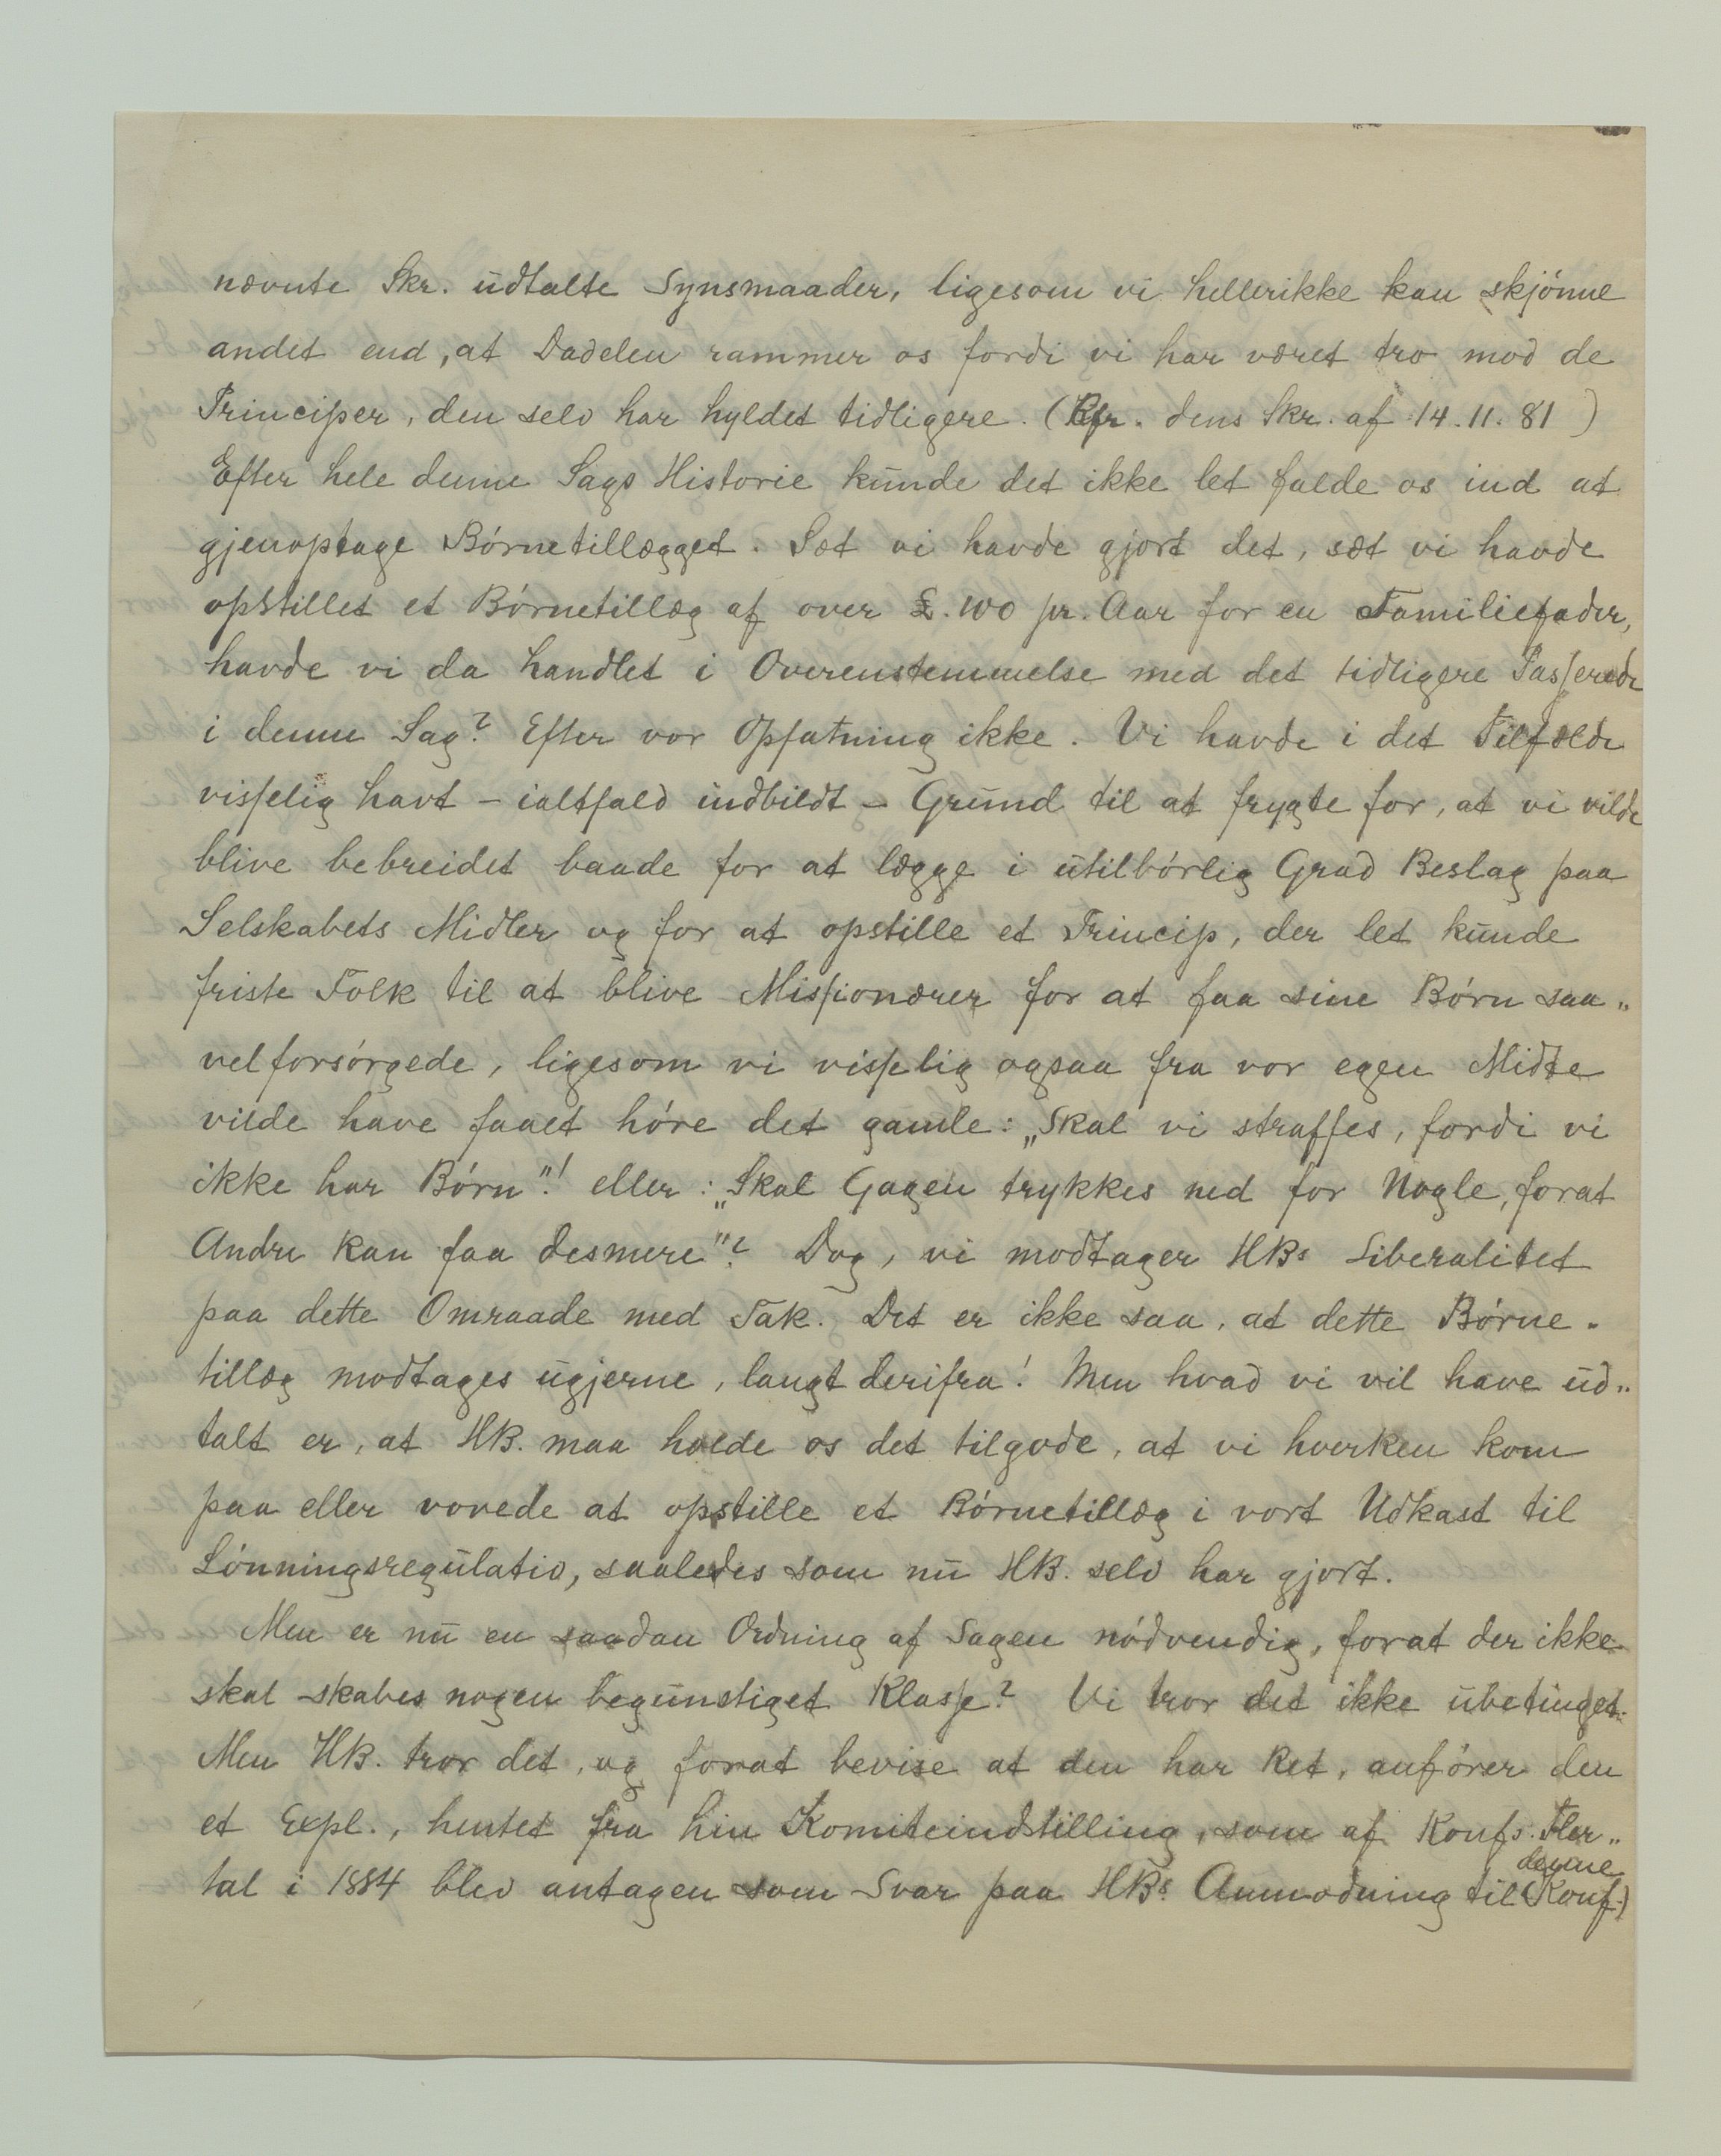 nævnte Skr. udtalte Synsmaader, ligesom vi hellerikke kan skjönne
andet end, at Dadelen rammer os fordi vi har været tro mod de
Principer, den selv har hyldet tidligere. (Kfr. dens Skr. af 14.11.81)
Efter hele denne Sags Historie kunde det ikke let falde os ind at
gjenoptage Börnetillægget. Sæt vi havde gjort det, sæt vi havde
opstillet et Börnetillæg af over £.100 pr. Aar for en Familiefader,
havde vi da handlet i Overenstemmelse med det tidligere Passerede
i denne Sag? Efter vor Opfatning ikke. Vi havde i det Tilfælde
visselig havt – ialtfald indbildt – Grund til at frygte for, at vi vilde
blive bebreidet baade for at lægge i utilbörlig Grad Beslag paa
Selskabets Midler og for at opstille et Princip, der let kunde
friste Folk til at blive Missionærer for at faa sine Börn saa„
velforsörgede, ligesom vi visselig ogsaa fra vor egen Midte
vilde have faaet höre det gamle: „Skal vi straffes, fordi vi
ikke har Börn"! eller: „Skal Gagen trykkes ned for Nogle, forat
Andre kan faa desmere"? Dog, vi modtager HBs Liberalitet
paa dette Omraade med Tak. Det er ikke saa, at dette Börne-
tillæg modtages ugjerne, langt derifra! Men hvad vi vil have ud„
talt er, at HB. maa holde os det tilgode, at vi hverken kom
paa eller vovede at opstille et Börnetillæg i vort Udkast til
Lönningsregulativ, saaledes som nu HB. selv har gjort.
Men er nu en saadan Ordning af Sagen nödvendig, forat der ikke
skal skabes nogen begunstiget Klasse? Vi tror det ikke ubetinget.
Men HB. tror det, og forat bevise at den har Ret, anförer den
et Expl., hentet fra hin Komiteindstilling, som af Konfs. Fler„
tal i 1884 blev antagen som Svar paa HBs Anmodning til denne (Konf.)